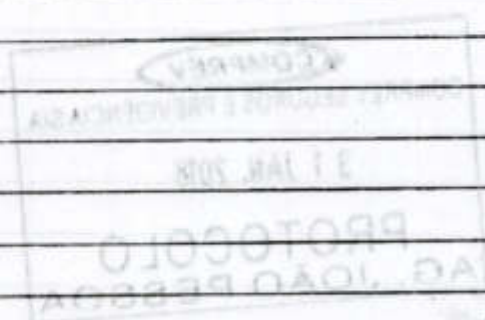 COMPREV
COMPREV SEGUROS E PREVIDÊNCIA S/A
31 JAN. 2018
PROTOCOLO
AG. JOÃO PESSOA